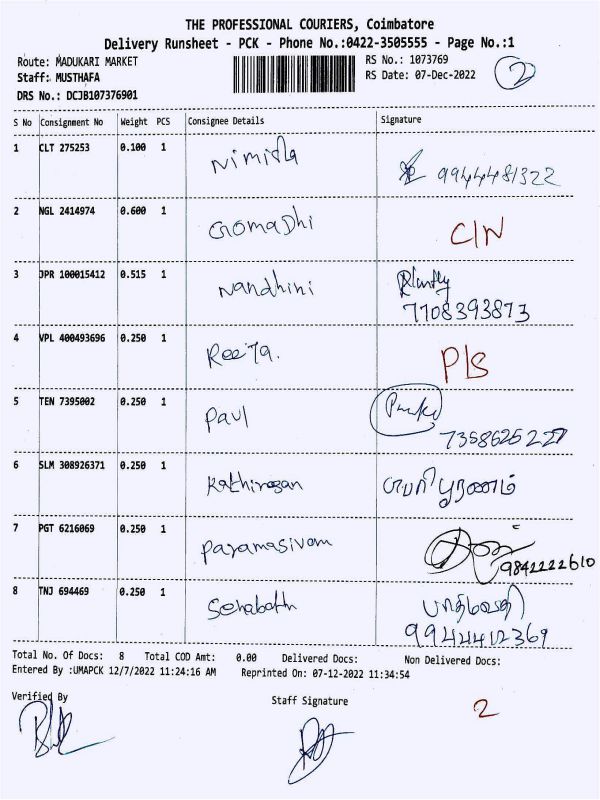 THE PROFESSIONAL COURIERS, Coimbatore
Delivery Runsheet - PCK - Phone No.:0422-3505555 - Page No.:1
Route: MADUKARI MARKET
RS No.: 1073769
2
Staff: MUSTHAFA
RS Date: 07-Dec-2022
DRS No.: DCJB107376901
S No Consignment No Weight PCS Consignee Details Signature
1 CLT 275253 0.100 1 Nimisla
9944481322
2 NGL 2414974 0.600 1 Gomadhi C/N
3 JPR 100015412 0.515 1 Nandhini
7708393873
4 VPL 400493696 0.250 1 Reeta. P/S
5 TEN 7395002 0.250 1 Paul
7358625227
6 SLM 308926371 0.250 1 Kathiresan பெரிபூரணம்
7 PGT 6216069 0.250 1 Paramasivam
9842222610
8 TNJ 694469 0.250 1
9944412369
Total No. Of Docs: 8 Total COD Amt: 0.00 Delivered Docs: Non Delivered Docs:
Entered By :UMAPCK 12/7/2022 11:24:16 AM Reprinted On: 07-12-2022 11:34:54
Verified By Staff Signature
2